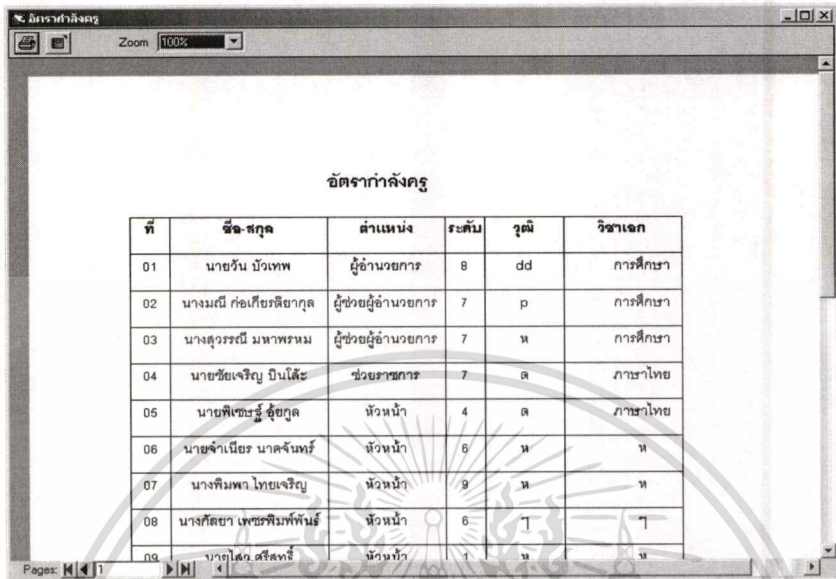 อัตรากำลังครู
Zoom 100%
อัตรากำลังครู
ที่ ชื่อ-สกุล ตำแหน่ง ระดับ วุฒิ วิชาเอก
01 นายวัน บัวเทพ ผู้อำนวยการ 8 dd การศึกษา
02 นางมณี ก่อเกียรติยากุล ผู้ช่วยผู้อำนวยการ 7 p การศึกษา
03 นางสุวรรณี มหาพรหม ผู้ช่วยผู้อำนวยการ 7 ห การศึกษา
04 นายชัยเจริญ บินโต๊ะ ช่วยราชการ 7 ด ภาษาไทย
05 นายพิเชษฐ์ อุ้ยกูล หัวหน้า 4 ด ภาษาไทย
06 นายจำเนียร นาคจันทร์ หัวหน้า 6 ห ห
07 นางพิมพา ไทยเจริญ หัวหน้า 9 ห ห
08 นางกัลยา เพชรพิมพ์พันธ์ หัวหน้า 6 ๅ ๅ
09 หัวหน้า 1 ห ห
Pages: 1